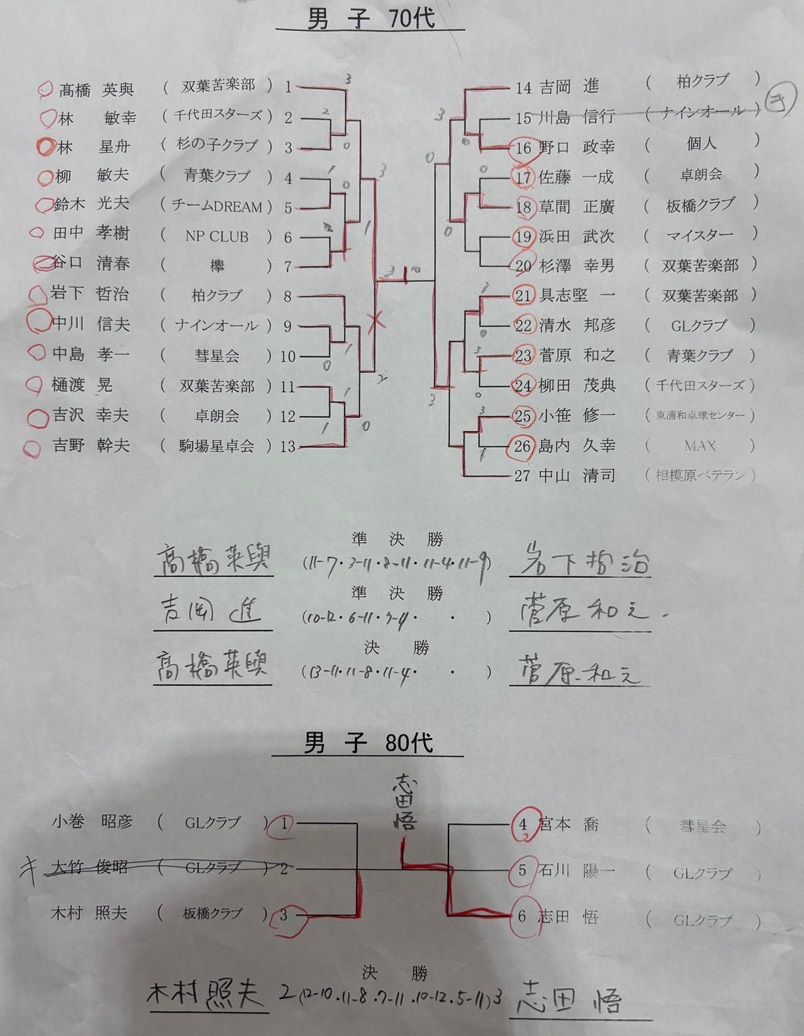 男 子 70代
髙橋 英與 ( 双葉苦楽部 ) 1
林 敏幸 ( 千代田スターズ ) 2
林 星舟 ( 杉の子クラブ ) 3
柳 敏夫 ( 青葉クラブ ) 4
鈴木 光夫 ( チームDREAM ) 5
田中 孝樹 ( NP CLUB ) 6
谷口 清春 ( 欅 ) 7
岩下 哲治 ( 柏クラブ ) 8
中川 信夫 ( ナインオール ) 9
中島 孝一 ( 彗星会 ) 10
樋渡 晃 ( 双葉苦楽部 ) 11
吉沢 幸夫 ( 卓朗会 ) 12
吉野 幹夫 ( 駒場星卓会 ) 13
14 吉岡 進 ( 柏クラブ )
15 川島 信行 ( ナインオール ) キ
16 野口 政幸 ( 個人 )
17 佐藤 一成 ( 卓朗会 )
18 草間 正廣 ( 板橋クラブ )
19 浜田 武次 ( マイスター )
20 杉澤 幸男 ( 双葉苦楽部 )
21 具志堅 一 ( 双葉苦楽部 )
22 清水 邦彦 ( GLクラブ )
23 菅原 和之 ( 青葉クラブ )
24 柳田 茂典 ( 千代田スターズ )
25 小笹 修一 ( 東浦和卓球センター )
26 島内 久幸 ( MAX )
27 中山 清司 ( 相模原ベテラン )
準 決 勝
高橋英與 (11-7・3-11・8-11・11-4・11-9) 岩下哲治
準 決 勝
吉岡 進 (10-12・6-11・7-11・ ・ ) 菅原和之
決 勝
高橋英與 (13-11・11-8・11-4・ ・ ) 菅原和之
男 子 80代
志田悟
小巻 昭彦 ( GLクラブ ) 1
キ 大竹 俊昭 ( GLクラブ ) 2
木村 照夫 ( 板橋クラブ ) 3
4 宮本 喬 ( 彗星会 )
5 石川 陽一 ( GLクラブ )
6 志田 悟 ( GLクラブ )
決 勝
木村照夫 2 (12-10・11-8・7-11・10-12・5-11) 3 志田 悟